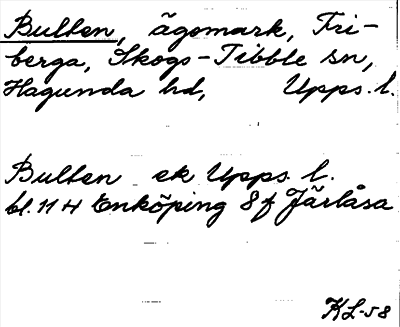 Bulten, ägomark, Fri-
berga, Skogs-Tibble sn,
Hagunda hd, Upps. l.
Bulten ek Upps. l.
bl. 11 H Enköping 8f Järlåsa
KL-58